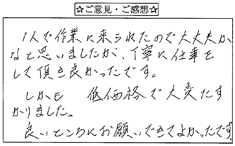 ☆ご意見・ご感想☆
1人で作業に来られたので大丈夫か
なと思いましたが、丁寧に仕事を
して頂き良かったです。
しかも 低価格で大変たす
かりました。
良いところにお願いできてよかったです